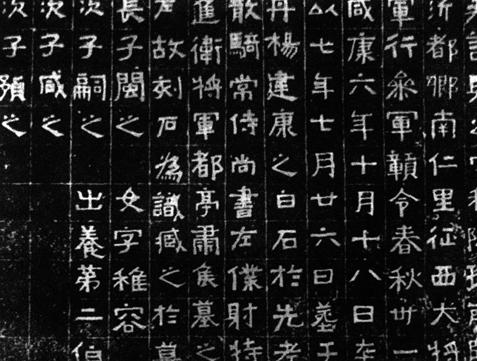 沂都鄉南仁里征西大將
軍行參軍贛令春秋卌一
咸康六年十月十八日卒
以七年七月廿六日葬于
丹楊建康之白石於先考
散騎常侍尚書左僕射特
進衛將軍都亭肅侯墓之
左故刻石為識臧之於墓
長子閩之 女字稚容
次子嗣之 出養第二伯
次子咸之
次子預之